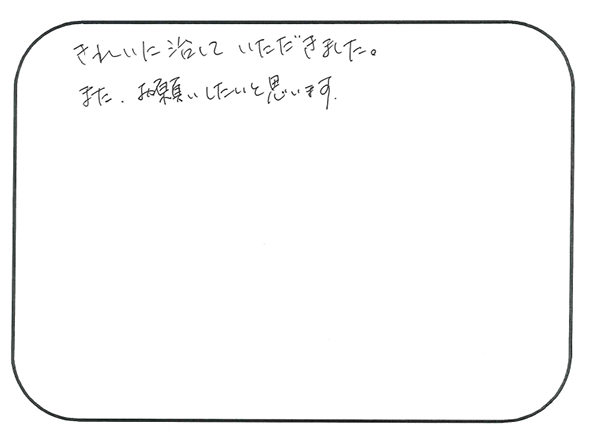 きれいに治して いただきました。
また、お願いしたいと思います。